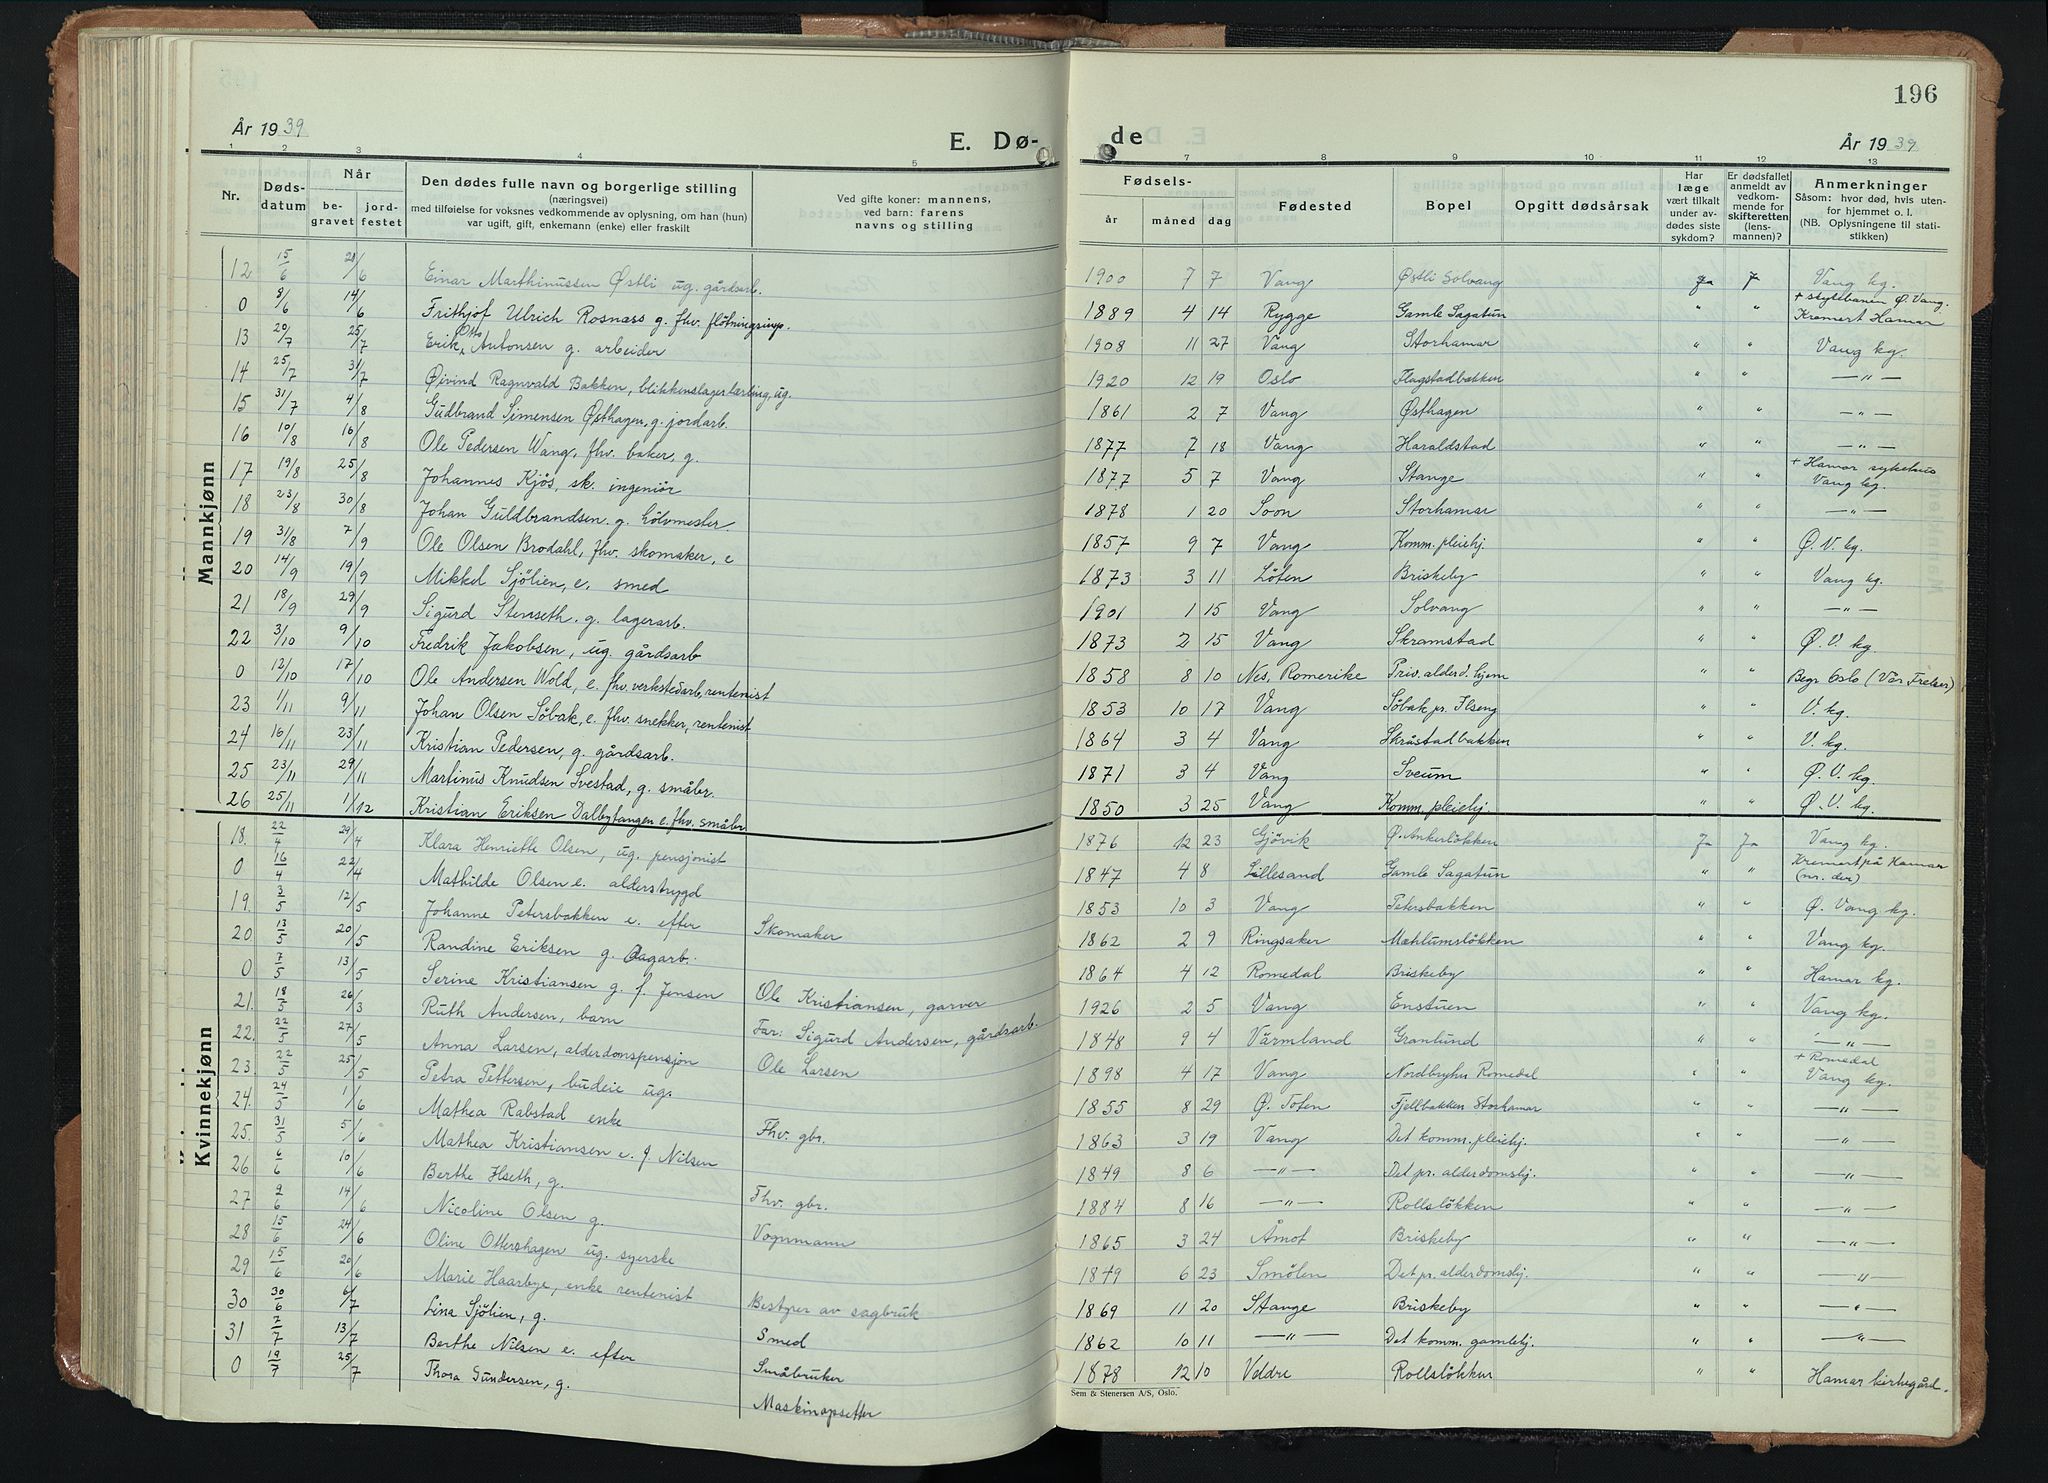 196
År 1939
E. Dø-
de
År 1939
1 2 3 4 5 7 8 9 10 11 12 13
Nr.
Døds-
datum
Når
be-
gravet
jord-
festet
Den dødes fulle navn og borgerlige stilling
(næringsvei)
med tilføielse for voksnes vedkommende av oplysning, om han (hun)
var ugift, gift, enkemann (enke) eller fraskilt
Ved gifte koner: mannens,
ved barn: farens
navns og stilling
Fødsels-
år måned dag
Fødested
Bopel
Opgitt dødsårsak
Har
læge
vært tilkalt
under av-
dødes siste
sykdom?
Er dødsfallet
anmeldt av
vedkom-
mende for
skifteretten
(lens-
mannen)?
Anmerkninger
Såsom: hvor død, hvis uten-
for hjemmet o. l.
(NB. Oplysningene til stati-
stikken)
Mannkjønn
12 15/6 21/6 Einar Marthinussen Østli ug. gårdsarb. 1900 7 7 Vang Østli Solvang Ja J Vang kg.
0 8/6 14/6 Frithjof Ulrich Rosnæss g. fhv. fløtningsinsp. 1889 4 14 Rygge Gamle Sagatun " " + skytebanen Ø. Vang.
Kremert Hamar
13 20/7 25/7 Erik Otto Antonsen g. arbeider 1908 11 27 Vang Storhamar " " Vang kg.
14 25/7 31/7 Øivind Ragnvald Bakken, blikkenslagerlærling, ug. 1920 12 19 Oslo Flagstadbakken " " —"—
15 31/7 4/8 Gudbrand Simensen Østhagen, g. jordarb. 1861 2 7 Vang Østhagen " " —"—
16 10/8 16/8 Ole Pedersen Wang, fhv. baker, g. 1877 7 18 Vang Haraldstad " " —"—
17 19/8 25/8 Johannes Kjøs, sk. ingeniør 1877 5 7 Vang Stange " " + Hamar sykehus
Vang kg.
18 23/8 30/8 Johan Guldbrandsen g. hølvmester 1878 1 20 Soon Storhamar " " —"—
19 31/8 7/9 Ole Olsen Brodahl, fhv. skomaker, e 1857 9 7 Vang Komm. pleiehj. " " Ø. V. kg.
20 14/9 19/9 Mikkel Sjølien, e. smed 1873 3 11 Løten Briskeby " " Vang kg.
21 18/9 29/9 Sigurd Stenseth. g. lagerarb. 1901 1 15 Vang Solvang " " —"—
22 3/10 9/10 Fredrik Jakobsen, ug. gårdsarb 1873 2 15 Vang Skramstad " " Ø. V. kg.
0 12/10 17/10 Ole Andersen Wold, e. fhv. verkstedarb, rentenist 1858 8 10 Nes, Romerike Priv. alderd. hjem " " Begr Oslo (Vår Frelser)
23 1/11 9/11 Johan Olsen Søbak, e. fhv. snekker, rentenist 1853 10 17 Vang Søbak pr. Ilseng " " V. kg.
24 16/11 23/11 Kristian Pedersen, g. gårdsarb. 1864 3 4 Vang Skråstadbakken " " V. kg.
25 23/11 29/11 Martinus Knudsen Svestad, g. småbr. 1871 3 4 Vang Sveum " " Ø. V. kg.
26 25/11 1/12 Kristian Eriksen Dalbytangen e. fhv. småbr 1850 3 25 Vang Komm. pleiehj. " " Ø. V. kg.
Kvinnekjønn
18. 22/4 29/4 Klara Henriette Olsen, ug. pensjonist 1876 12 23 Gjøvik Ø. Ankerløkken Ja Ja Vang kg.
0 16/4 22/4 Mathilde Olsen e. alderstrygd 1847 4 8 Lillesand Gamle Sagatun " " Kremert på Hamar
(nr. der)
19. 3/5 12/5 Johanne Petersbakken e. efter Skomaker 1853 10 3 Vang Petersbakken " " Ø. Vang kg.
20 13/5 20/5 Randine Eriksen g. Dagarb. 1862 2 9 Ringsaker Mæhlumsløkken " " Vang kg.
0 7/5 13/5 Serine Kristiansen g. f. Jensen Ole Kristiansen, garver 1864 4 12 Romedal Briskeby " " Hamar kg.
21. 18/5 26/3 Ruth Andersen, barn Far: Sigurd Andersen, gårdsarb. 1926 2 5 Vang Enstuen " " Vang kg.
22. 22/5 27/5 Anna Larsen, alderdonspensjon Ole Larsen 1848 9 4 Värmland Granlund " " —"—
23. 22/5 25/5 Petra Pettersen, budeie ug. 1898 4 17 Vang Nordbryhn Romedal " " + Romedal
Vang kg.
24. 24/5 1/6 Mathea Rabstad enke Fhv. gbr. 1855 8 29 Ø. Toten Fjellbakken Storhamar " " —"—
25. 31/5 5/6 Mathea Kristiansen e. f Nilsen 1863 3 19 Vang Det komm. pleiehj. " " —"—
26 6/6 10/6 Berthe Hseth, g. Fhv. gbr. 1849 8 6 —"— Det pr. alderdomshj. " " —"—
27 9/6 14/6 Nicoline Olsen g. Vognmann 1884 8 16 —"— Rollsløkken " " —"—
28 15/6 24/6 Oline Ottershagen ug. syerske 1865 3 24 Åmot Briskeby " " —"—
29 15/6 20/6 Marie Haarbye, enke rentenist Bestyrer av sagbruk 1849 6 23 Smølen Det pr. alderdomshj. " " —"—
30 30/6 6/7 Lina Sjølien, g. Smed 1869 11 20 Stange Briskeby " " —"—
31 7/7 13/7 Berthe Nilsen e. efter Småbruker 1862 10 11 —"— Det komm. gamlehj. " " —"—
0 19/7 25/7 Thora Gundersen, g. Maskinopsetter 1878 12 10 Veldre Rollsløkken " " Hamar kirkegård.
Sem & Stenersen A/S, Oslo.